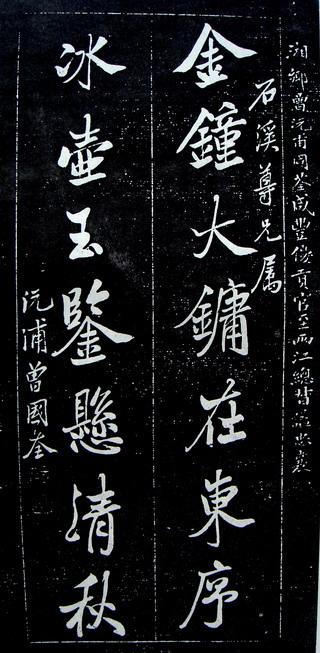 湘鄉曾沅甫國荃咸豐優貢官至兩江總督諡忠襄
石溪尊兄屬
金鐘大鏞在東序
冰壺玉鑒懸清秋
沅浦曾國荃